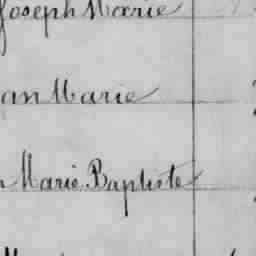 Joseph Marie
an Marie
Marie Baptiste